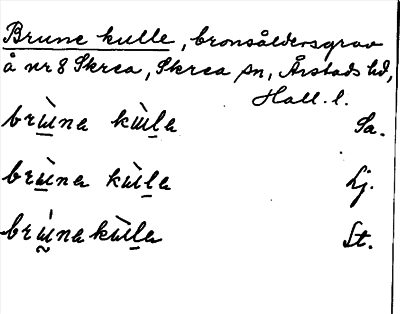 Brune kulle, bronsåldersgrav
å nr 8 Skrea, Skrea sn, Årstads hd,
Hall. l.
brɯ̀na kɯ̀la Sa.
brɯ̀na kɯ̀la Lj.
brɯ́na kɯ̀la St.